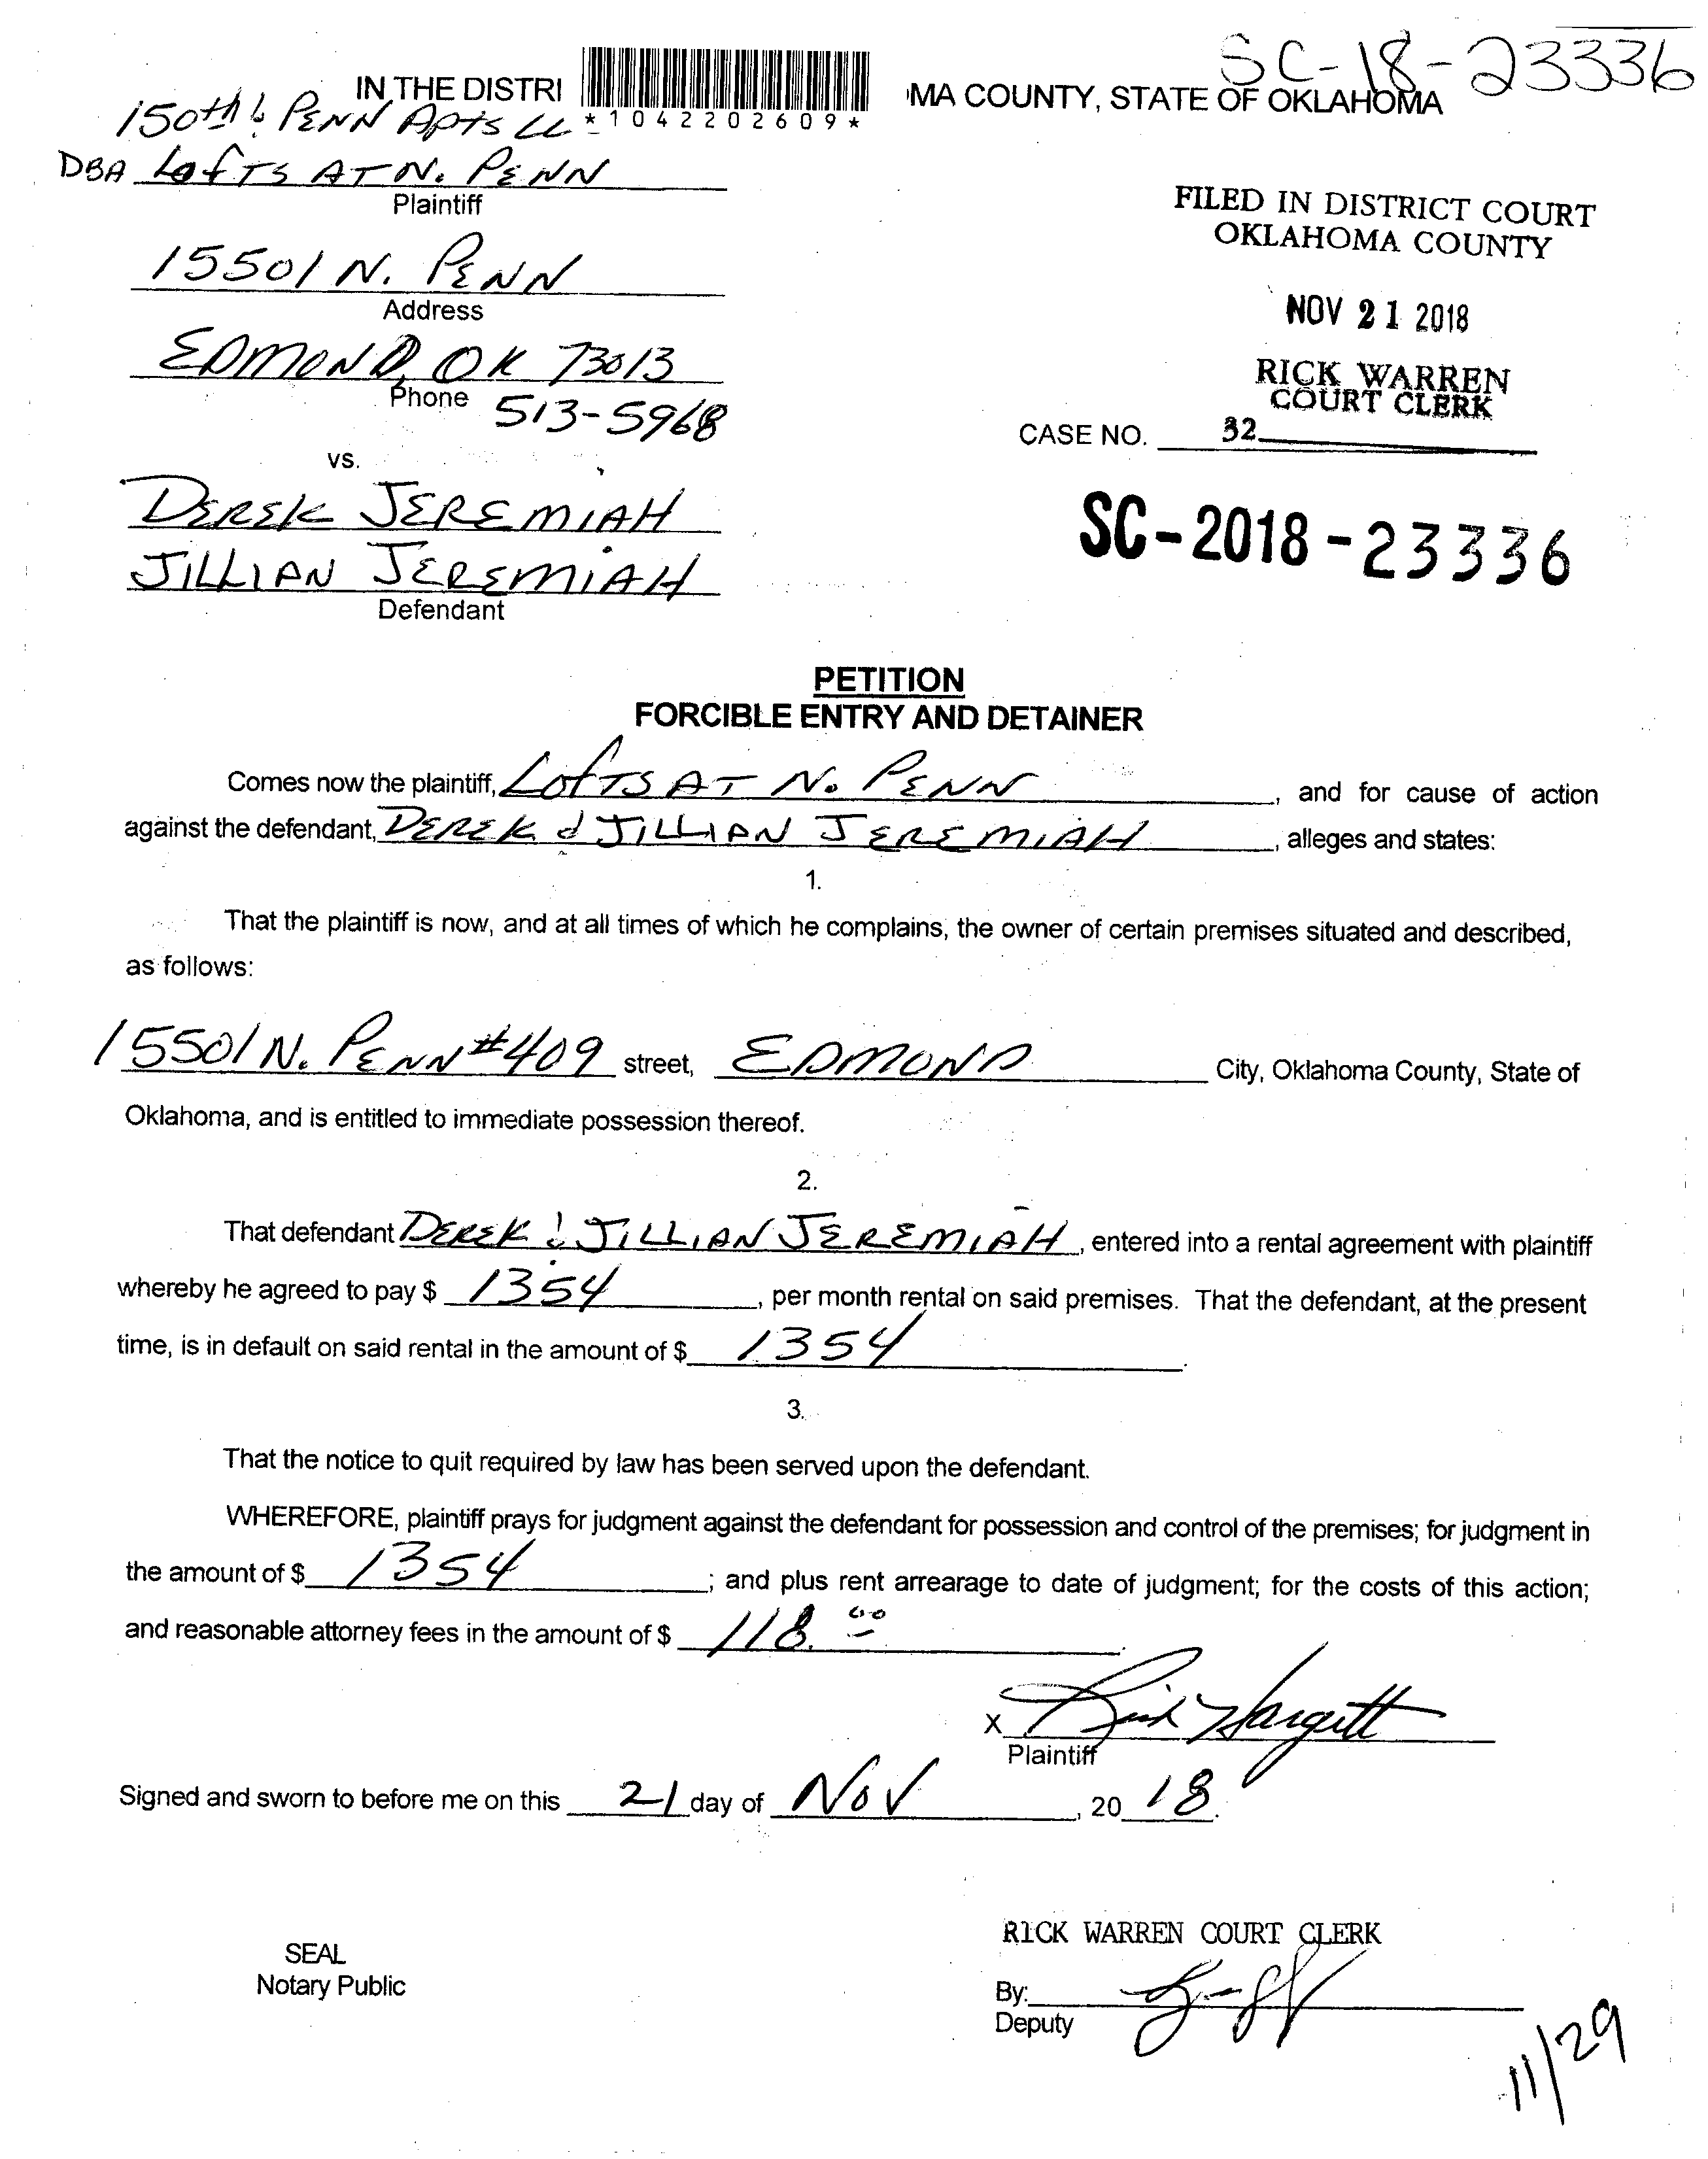 SC-18-23336
IN THE DISTRI MA COUNTY, STATE OF OKLAHOMA
*1042202609*
150th & PENN Apts LL
DBA LOFTS AT N. PENN
Plaintiff
FILED IN DISTRICT COURT
OKLAHOMA COUNTY
15501 N. PENN
Address
NOV 21 2018
EDMOND, OK 73013
Phone 513-5968
RICK WARREN
COURT CLERK
CASE NO. 32
vs.
DEREK JEREMIAH
JILLIAN JEREMIAH
Defendant
SC-2018-23336
PETITION
FORCIBLE ENTRY AND DETAINER
Comes now the plaintiff, LOFTS AT N. PENN, and for cause of action
against the defendant, DEREK & JILLIAN JEREMIAH, alleges and states:
1.
That the plaintiff is now, and at all times of which he complains, the owner of certain premises situated and described,
as follows:
15501 N. PENN #409 street, EDMOND City, Oklahoma County, State of
Oklahoma, and is entitled to immediate possession thereof.
2.
That defendant DEREK & JILLIAN JEREMIAH, entered into a rental agreement with plaintiff
whereby he agreed to pay $ 1354, per month rental on said premises. That the defendant, at the present
time, is in default on said rental in the amount of $ 1354.
3.
That the notice to quit required by law has been served upon the defendant.
WHEREFORE, plaintiff prays for judgment against the defendant for possession and control of the premises; for judgment in
the amount of $ 1354; and plus rent arrearage to date of judgment; for the costs of this action;
and reasonable attorney fees in the amount of $ 118.00.
X Rick Hargett
Plaintiff
Signed and sworn to before me on this 21 day of Nov, 20 18.
RICK WARREN COURT CLERK
SEAL
Notary Public
By:
Deputy
11/29